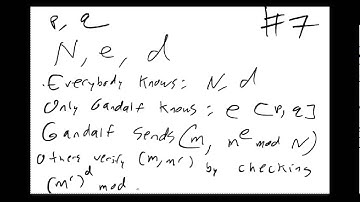 p, q #7
N, e, d
.Everybody knows: N, d
Only Gandalf knows: e [p, q]
Gandalf sends (m, m^e mod N)
Others verify (m, m') by checking
(m')^d mod